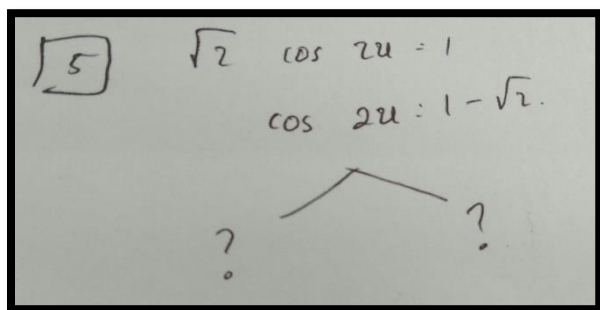 5 √2 cos 2u = 1
cos 2u = 1 - √2.
? ?